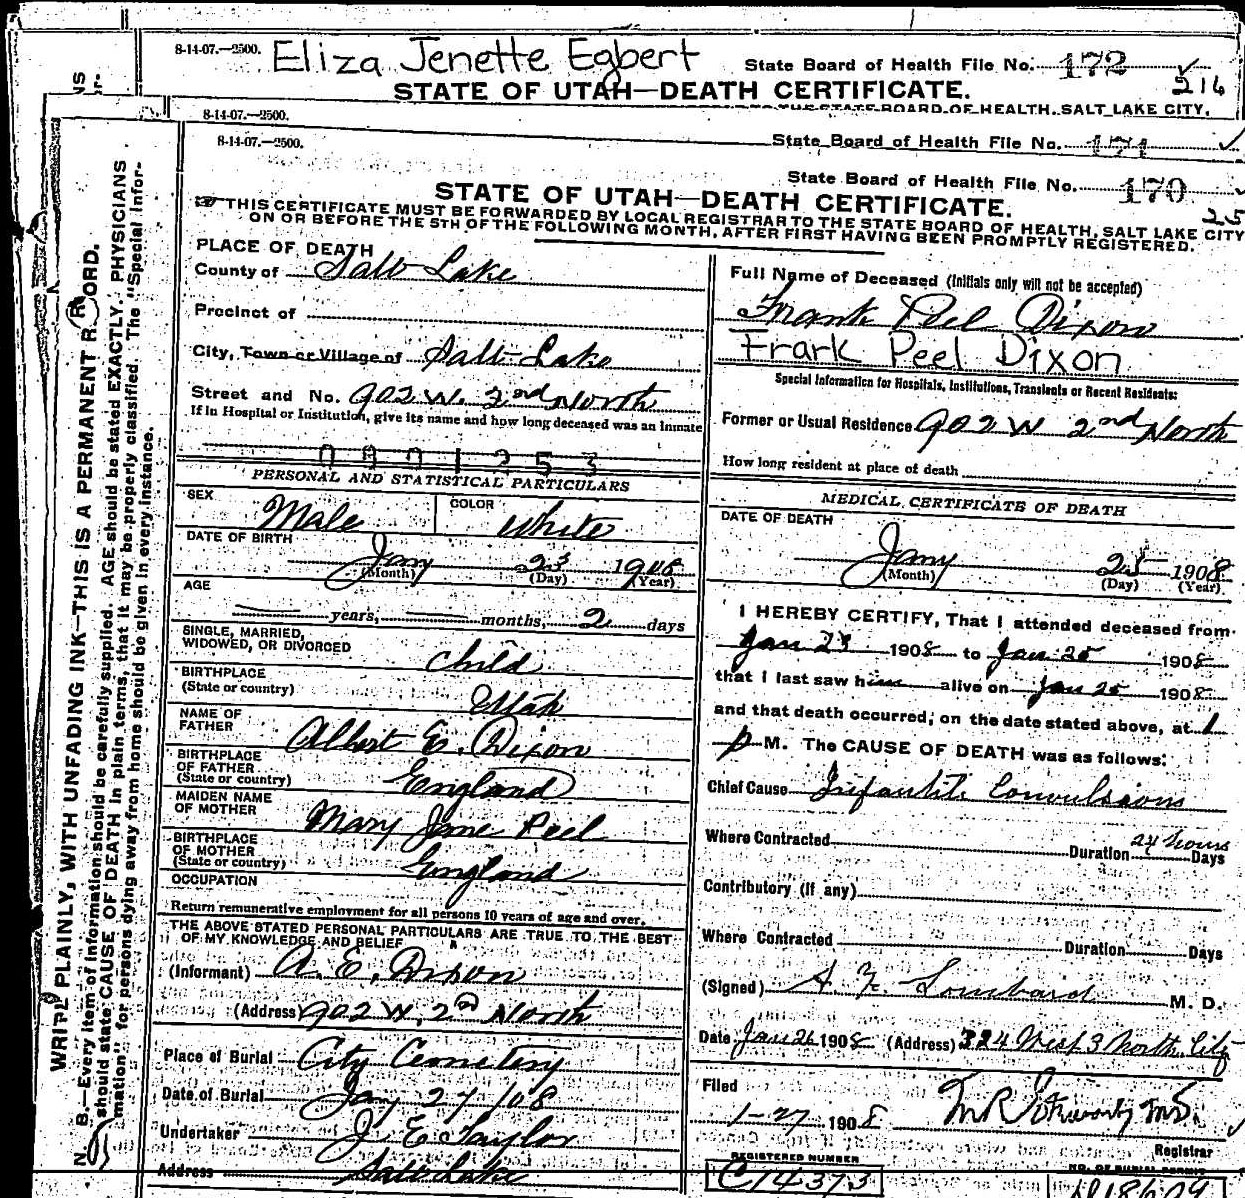 8-14-07.—2500. Eliza Jenette Egbert State Board of Health File No. 172
216
STATE OF UTAH—DEATH CERTIFICATE.
STATE BOARD OF HEALTH, SALT LAKE CITY,
8-14-07.—2500.
State Board of Health File No. 171
8-14-07.—2500.
State Board of Health File No. 170
25
STATE OF UTAH—DEATH CERTIFICATE.
THIS CERTIFICATE MUST BE FORWARDED BY LOCAL REGISTRAR TO THE STATE BOARD OF HEALTH, SALT LAKE CITY
ON OR BEFORE THE 5TH OF THE FOLLOWING MONTH, AFTER FIRST HAVING BEEN PROMPTLY REGISTERED.
WRITE PLAINLY, WITH UNFADING INK—THIS IS A PERMANENT RECORD.
N. B.—Every item of information should be carefully supplied. AGE should be stated EXACTLY. PHYSICIANS
should state CAUSE OF DEATH in plain terms, that it may be properly classified. The "Special Infor-
mation" for persons dying away from home should be given in every instance.
PLACE OF DEATH
County of Salt Lake
Precinct of
City, Town or Village of Salt Lake
Street and No. 902 W. 2nd North
If in Hospital or Institution, give its name and how long deceased was an inmate
PERSONAL AND STATISTICAL PARTICULARS
SEX Male COLOR White
DATE OF BIRTH Jany 23 1908
(Month) (Day) (Year)
AGE
years, months, 2 days
SINGLE, MARRIED,
WIDOWED, OR DIVORCED Child
BIRTHPLACE
(State or country) Utah
NAME OF
FATHER Albert E. Dixon
BIRTHPLACE
OF FATHER
(State or country) England
MAIDEN NAME
OF MOTHER Mary Jane Peel
BIRTHPLACE
OF MOTHER
(State or country) England
OCCUPATION
Return remunerative employment for all persons 10 years of age and over.
THE ABOVE STATED PERSONAL PARTICULARS ARE TRUE TO THE BEST
OF MY KNOWLEDGE AND BELIEF
(Informant) A. E. Dixon
(Address) 902 W. 2nd North
Place of Burial City Cemetery
Date of Burial Jany 27/08
Undertaker J E Taylor
Address Salt Lake
Full Name of Deceased (Initials only will not be accepted)
Frank Peel Dixon
Frark Peel Dixon
Special Information for Hospitals, Institutions, Transients or Recent Residents:
Former or Usual Residence 902 W 2nd North
How long resident at place of death
MEDICAL CERTIFICATE OF DEATH
DATE OF DEATH
Jany 25 1908
(Month) (Day) (Year)
I HEREBY CERTIFY, That I attended deceased from
Jan 23 1908 to Jan 25 1908
that I last saw him alive on Jan 25 1908
and that death occurred, on the date stated above, at 1
p M. The CAUSE OF DEATH was as follows:
Chief Cause Infantile Convulsions
Where Contracted Duration 24 hours Days
Contributory (if any)
Where Contracted Duration Days
(Signed) A. Z. Lombard M. D.
Date Jan 26 1908 (Address) 324 West 3 North City
Filed
1-27 1908
Registrar
REGISTERED NUMBER
C14373
NO. OF BURIAL PERMIT